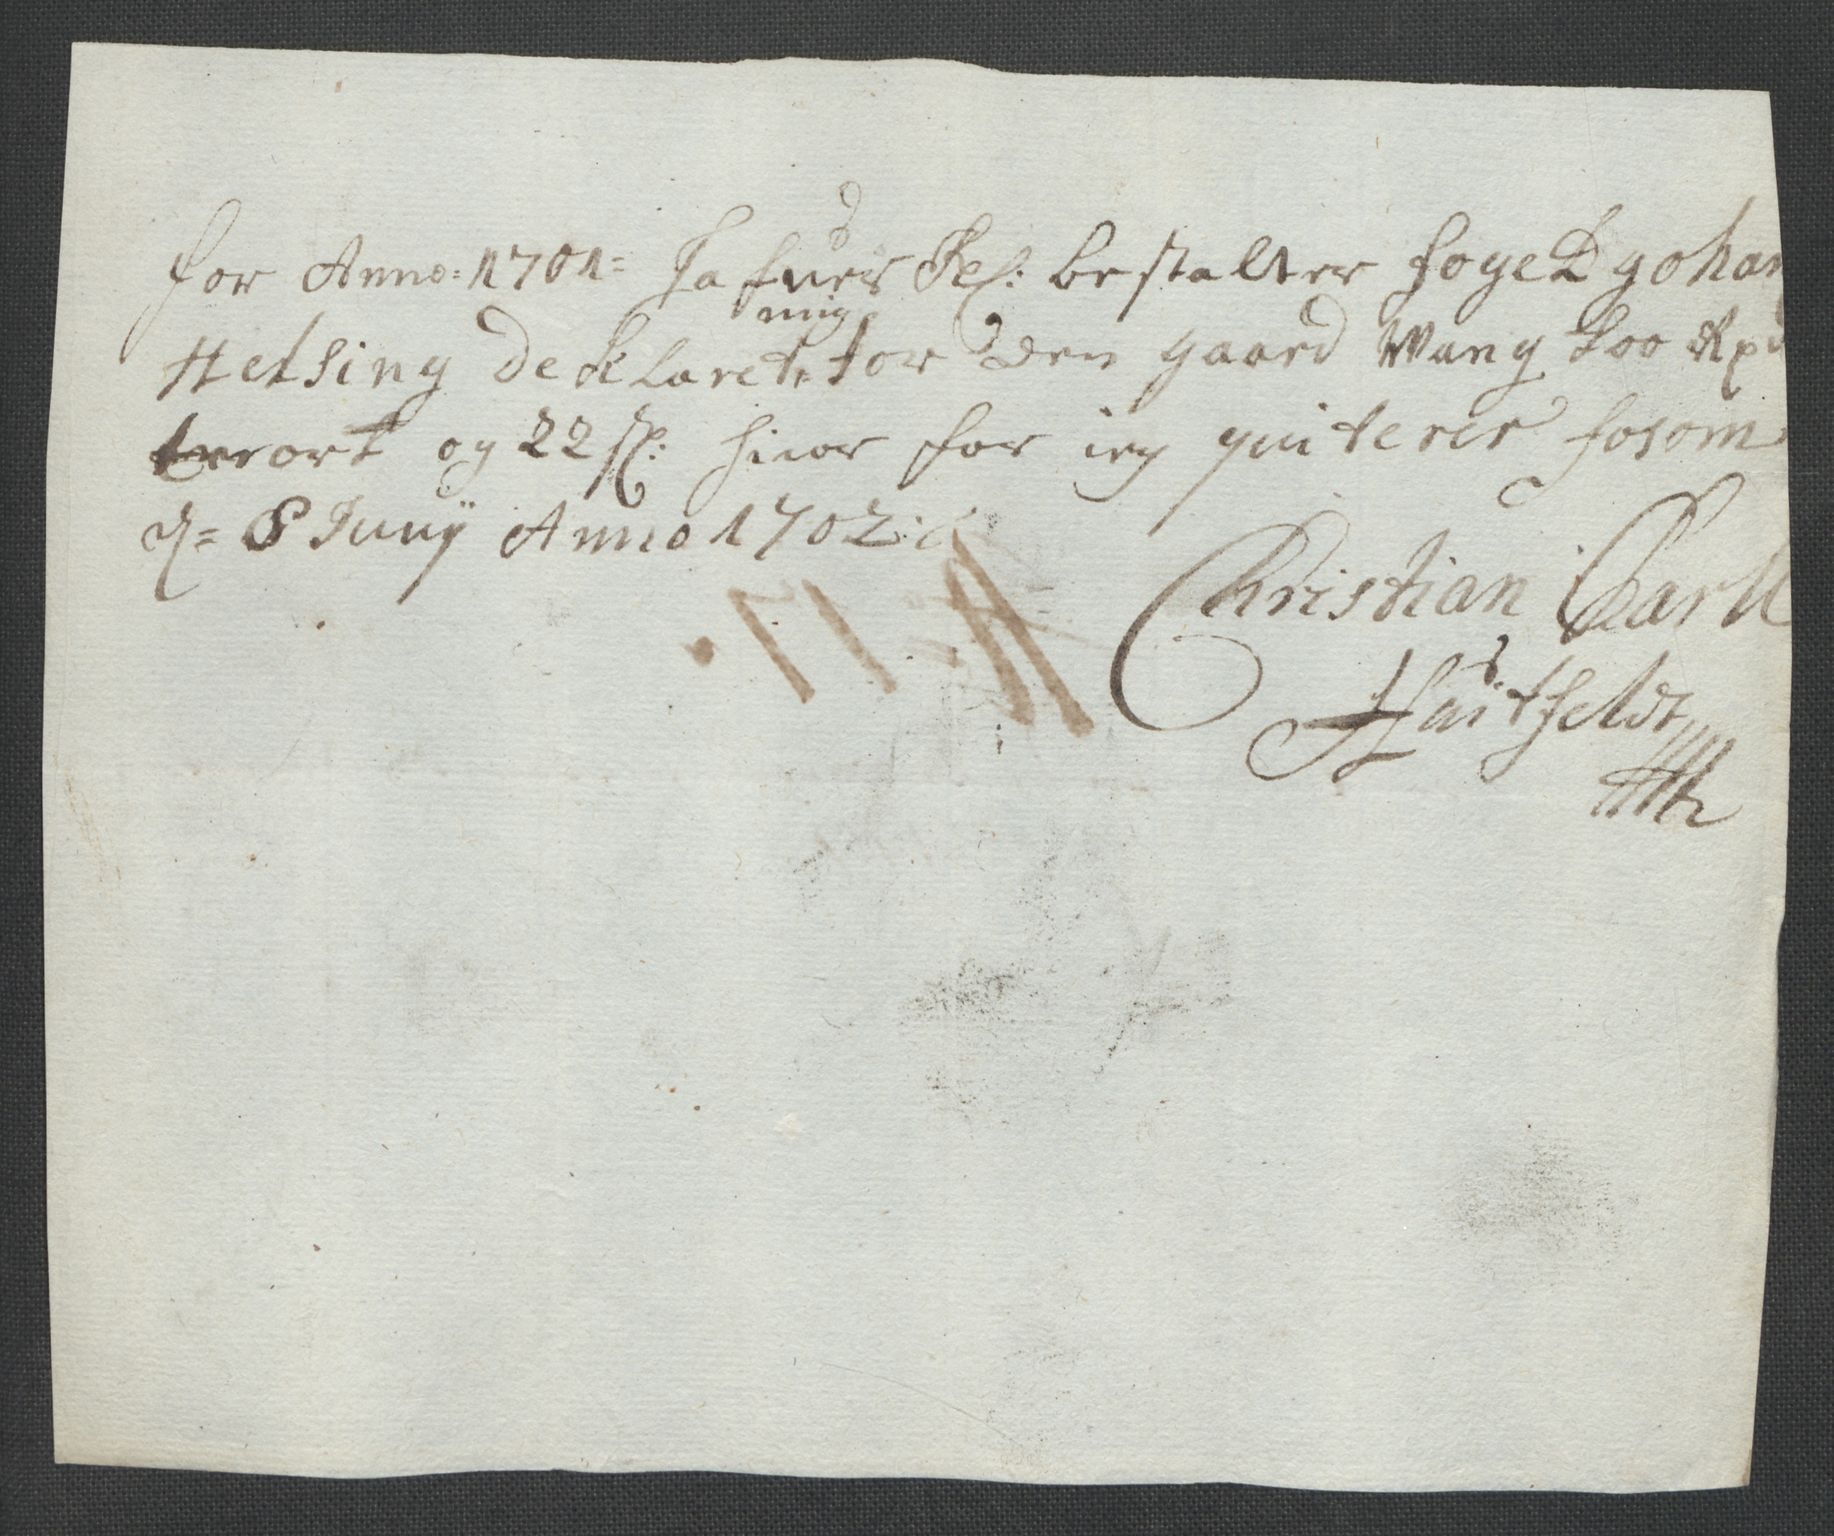 for Anno: 1701 = Hafuer Kl: bestalter foged Johan
Helsing Deklaret mig for den gaard Wang Too Rp
ort og 22 sl: huor for ieg quiterer fosom
d = 8 Junij Anno 1702:
Christian Carll
Huitfeldt
N: 17.